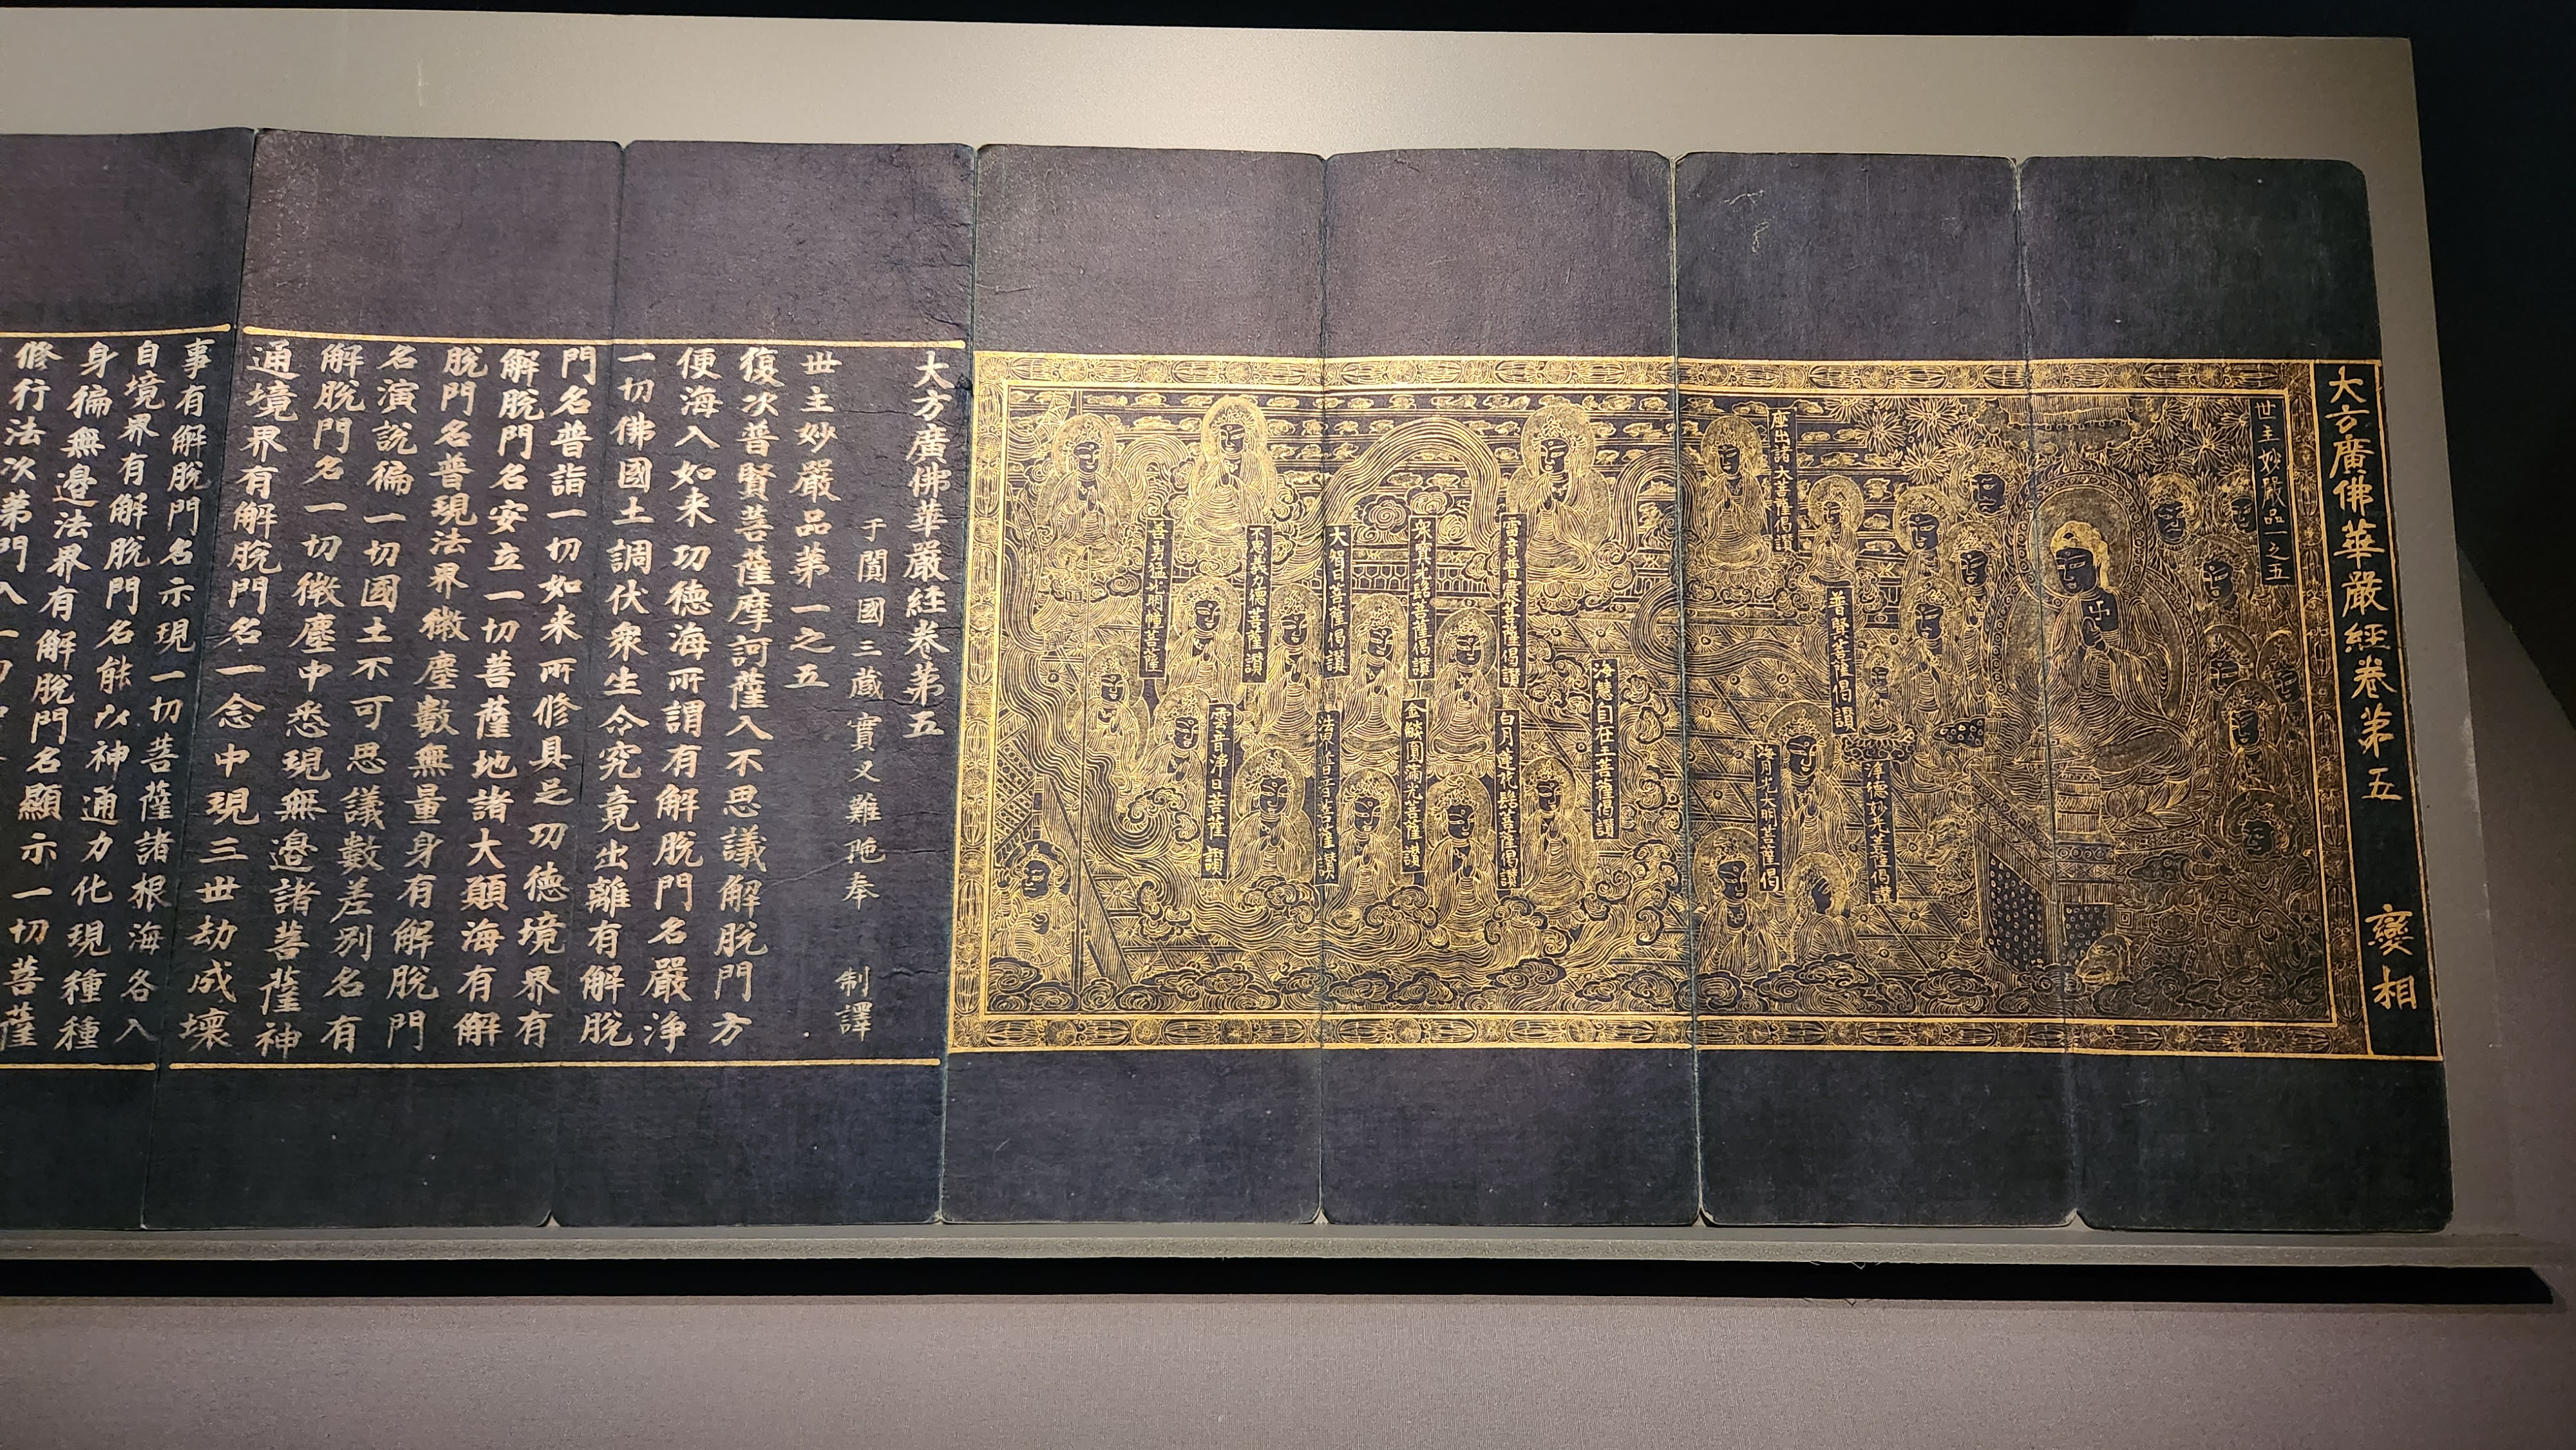 大方廣佛華嚴經卷第五 變相
世主妙嚴品一之五
座出諸大菩薩偈讚
普賢菩薩偈讚
淨德妙光菩薩偈讚
海月光大明菩薩偈
海慧自在王菩薩偈讚
雷音普震菩薩偈讚
白月蓮花髻菩薩偈讚
衆寶光髻菩薩偈讚
金燄圓滿光菩薩讚
大智日菩薩偈讚
音菩薩讚
不思議功德菩薩讚
雲音淨日菩薩讚
善勇猛光明幢菩薩
大方廣佛華嚴經卷第五
于闐國三藏實叉難陁奉 制譯
世主妙嚴品第一之五
復次普賢菩薩摩訶薩入不思議解脫門方
便海入如来功德海所謂有解脫門名嚴淨
一切佛國土調伏衆生令究竟出離有解脫
門名普詣一切如来所修具足功德境界有
解脫門名安立一切菩薩地諸大願海有解
脫門名普現法界微塵數無量身有解脫門
名演說徧一切國土不可思議數差别名有
解脫門名一切微塵中悉現無邊諸菩薩神
通境界有解脫門名一念中現三世劫成壞
事有解脫門名示現一切菩薩諸根海各入
自境界有解脫門名能以神通力化現種種
身徧無邊法界有解脫門名顯示一切菩薩
修行法次第門入一切